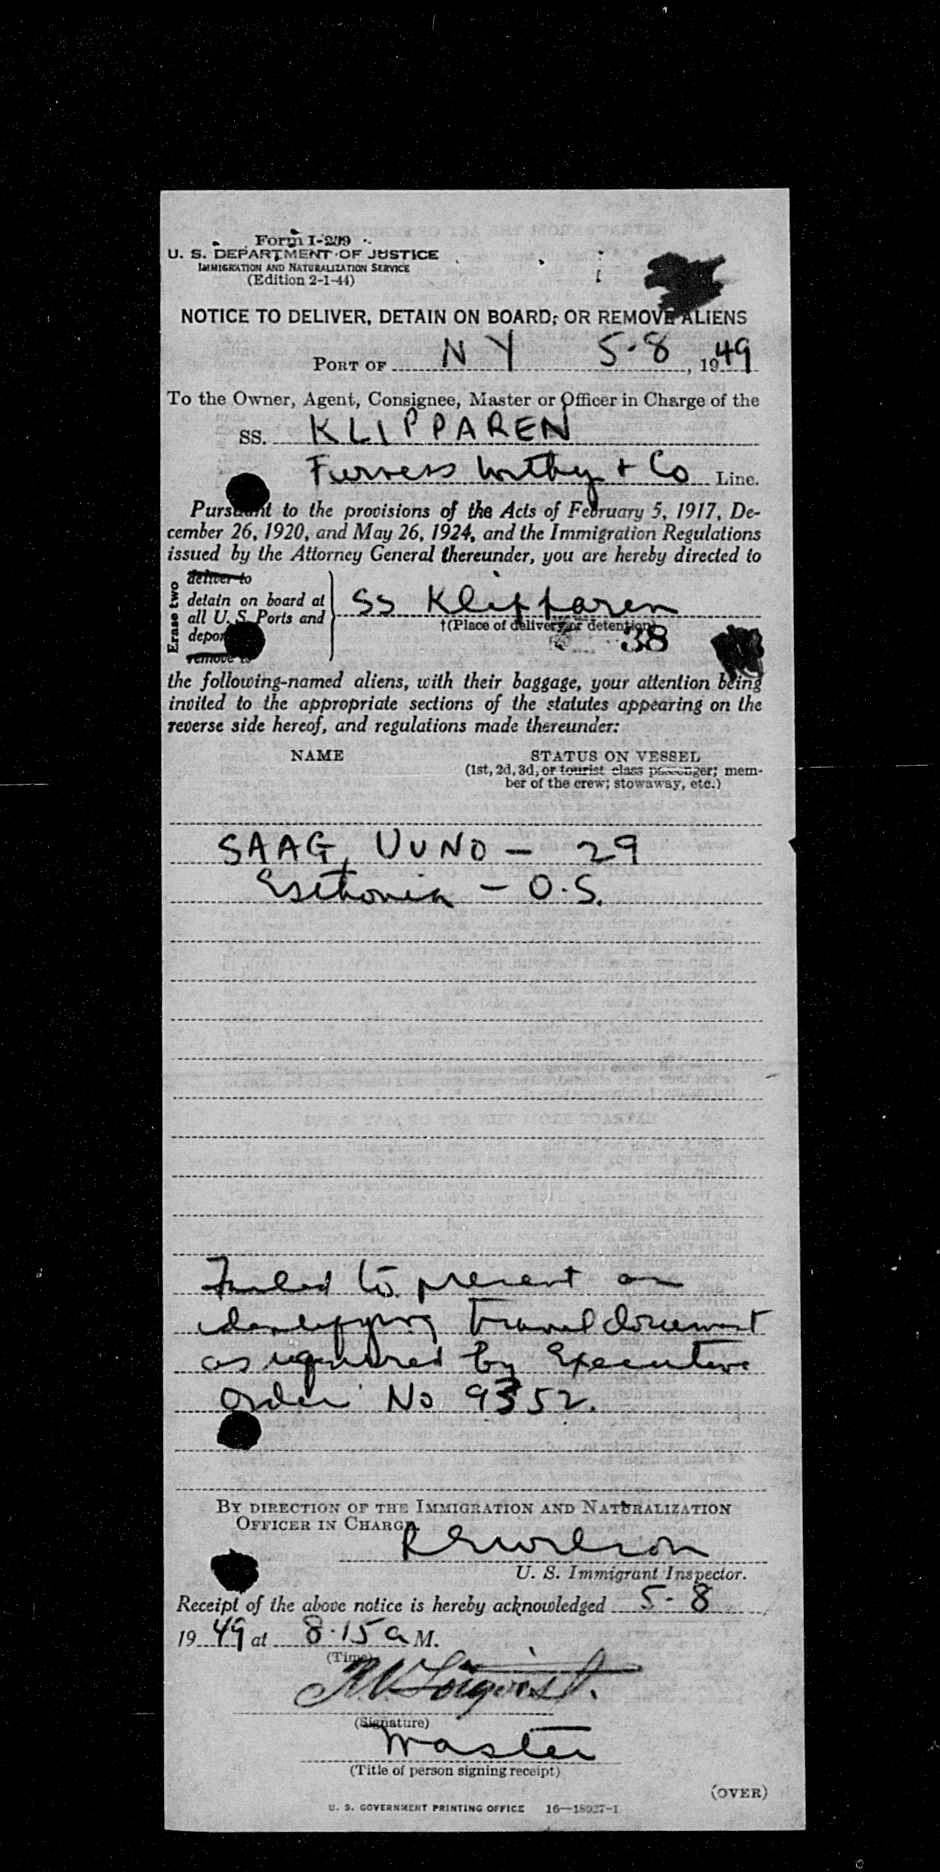 Form I-299
U. S. DEPARTMENT OF JUSTICE
IMMIGRATION AND NATURALIZATION SERVICE
(Edition 2-1-44)
NOTICE TO DELIVER, DETAIN ON BOARD, OR REMOVE ALIENS
PORT OF NY 5-8, 1949
To the Owner, Agent, Consignee, Master or Officer in Charge of the
SS. KLIPPAREN
Furness Withy + Co Line.
Pursuant to the provisions of the Acts of February 5, 1917, De-
cember 26, 1920, and May 26, 1924, and the Immigration Regulations
issued by the Attorney General thereunder, you are hereby directed to
Erase two
deliver to
detain on board at
all U. S. Ports and
deport
remove to
SS Klipparen
†(Place of delivery or detention)
38
the following-named aliens, with their baggage, your attention being
invited to the appropriate sections of the statutes appearing on the
reverse side hereof, and regulations made thereunder:
NAME STATUS ON VESSEL
(1st, 2d, 3d, or tourist class passenger; mem-
ber of the crew; stowaway, etc.)
SAAG, UUNO - 29
Esthonia - O.S.
Failed to present an
identifying travel document
as required by Executive
Order No 9352.
BY DIRECTION OF THE IMMIGRATION AND NATURALIZATION
OFFICER IN CHARGE.
U. S. Immigrant Inspector.
Receipt of the above notice is hereby acknowledged 5-8
1949 at 8.15 a M.
(Time)
(Signature)
Master
(Title of person signing receipt)
(OVER)
U. S. GOVERNMENT PRINTING OFFICE 16—18027-1